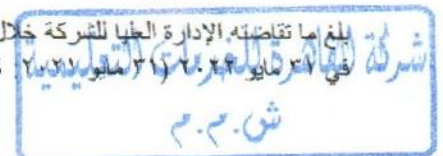 بلغ ما تقاضته الإدارة العليا للشركة خلال
في ٣١ مايو ٢٠٢٢ (٣١ مايو ٢٠٢١
شركة القاهرة للخدمات التعليمية
ش.م.م